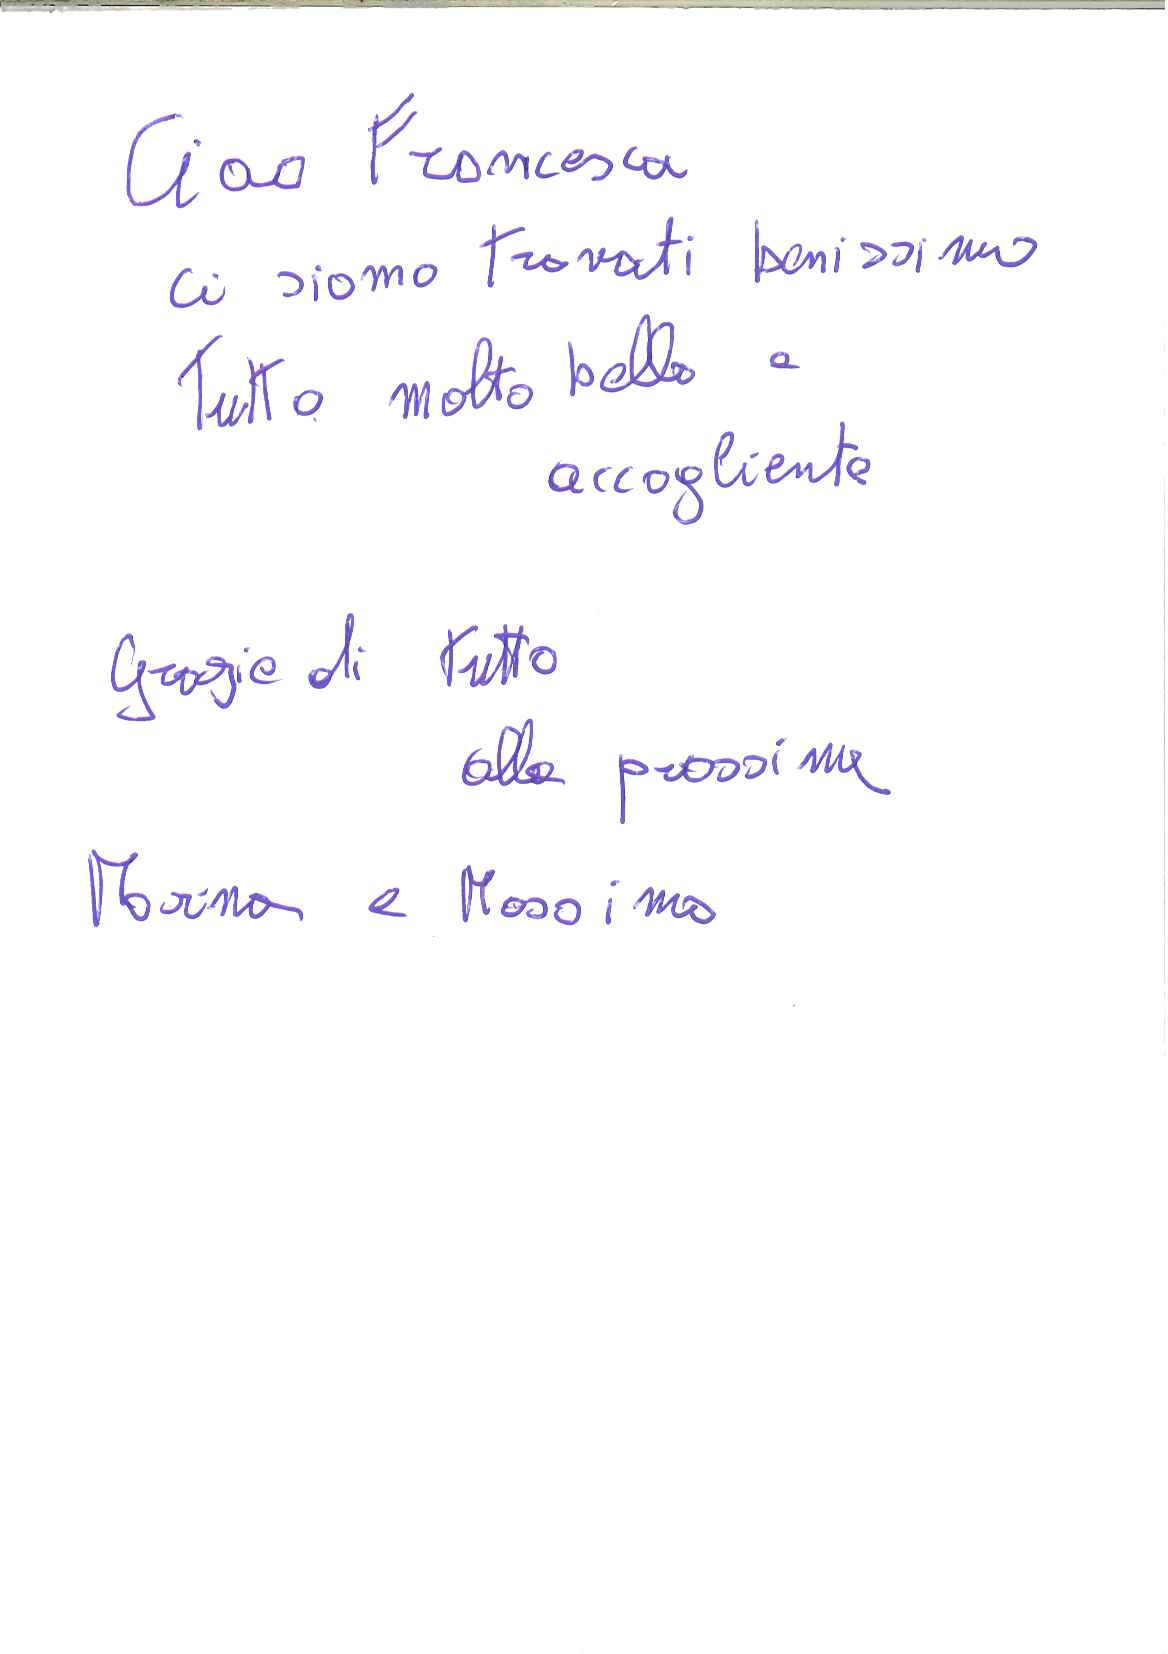 Ciao Francesca
ci siamo trovati benissimo
Tutto molto bello e
accogliente
Grazie di tutto
alla prossima
Marina e Massimo